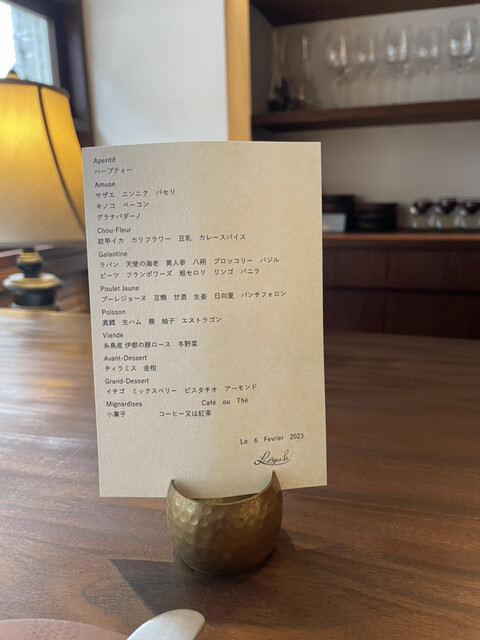 Aperitif
ハーブティー
Amuse
サザエ　ニンニク　パセリ
キノコ　ベーコン
グラナパダーノ
Chou-Fleur
紋甲イカ　カリフラワー　豆乳　カレースパイス
Galantine
ラパン　天使の海老　黄人参　八朔　ブロッコリー　バジル
ビーツ　フランボワーズ　根セロリ　リンゴ　バニラ
Poulet Jaune
プーレジョーヌ　豆類　甘酒　生姜　日向夏　パンチフォロン
Poisson
真鱈　生ハム　蕪　柚子　エストラゴン
Viande
糸島産 伊都の豚ロース　冬野菜
Avant-Dessert
ティラミス　金柑
Grand-Dessert
イチゴ　ミックスベリー　ピスタチオ　アーモンド
Mignardises　Café　ou　Thé
小菓子　コーヒー又は紅茶
Le　6　Fevrier　2023